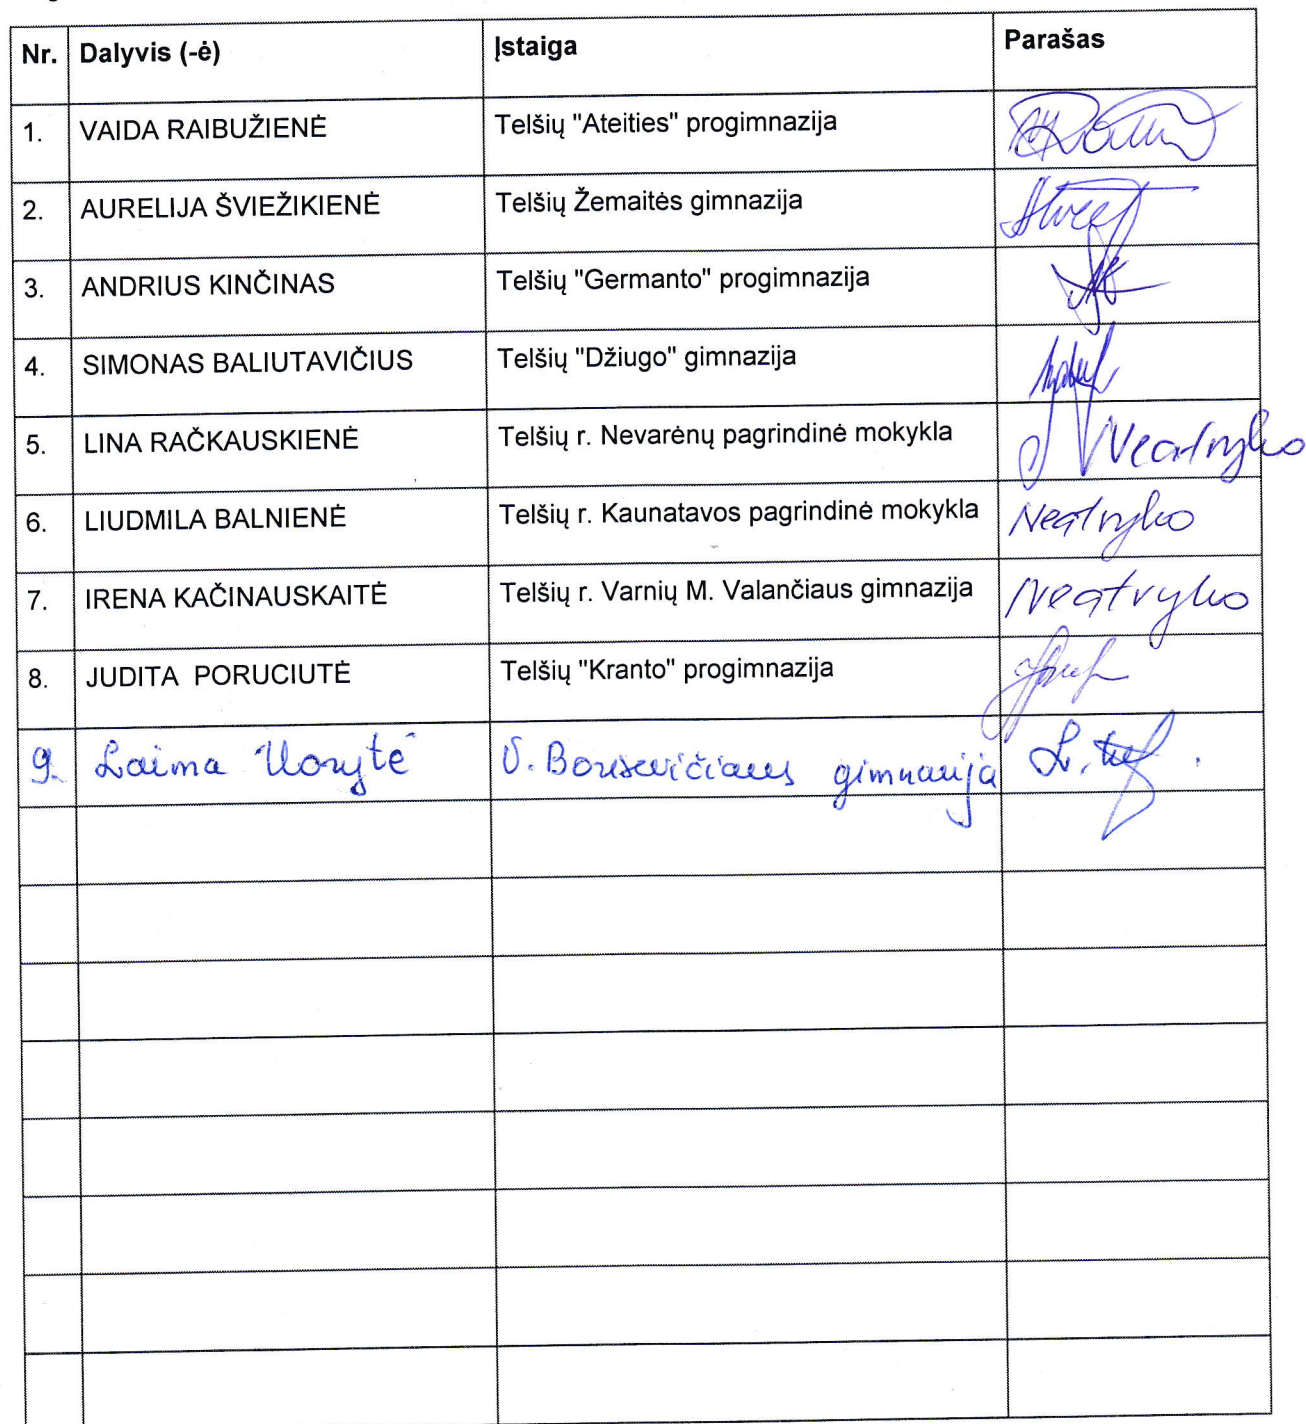 Nr. Dalyvis (-ė) Įstaiga Parašas
1. VAIDA RAIBUŽIENĖ Telšių "Ateities" progimnazija
2. AURELIJA ŠVIEŽIKIENĖ Telšių Žemaitės gimnazija
3. ANDRIUS KINČINAS Telšių "Germanto" progimnazija
4. SIMONAS BALIUTAVIČIUS Telšių "Džiugo" gimnazija
5. LINA RAČKAUSKIENĖ Telšių r. Nevarėnų pagrindinė mokykla Neatvyko
6. LIUDMILA BALNIENĖ Telšių r. Kaunatavos pagrindinė mokykla Neatvyko
7. IRENA KAČINAUSKAITĖ Telšių r. Varnių M. Valančiaus gimnazija Neatvyko
8. JUDITA PORUCIUTĖ Telšių "Kranto" progimnazija
9. Laima V. Borisevičiaus gimnazija